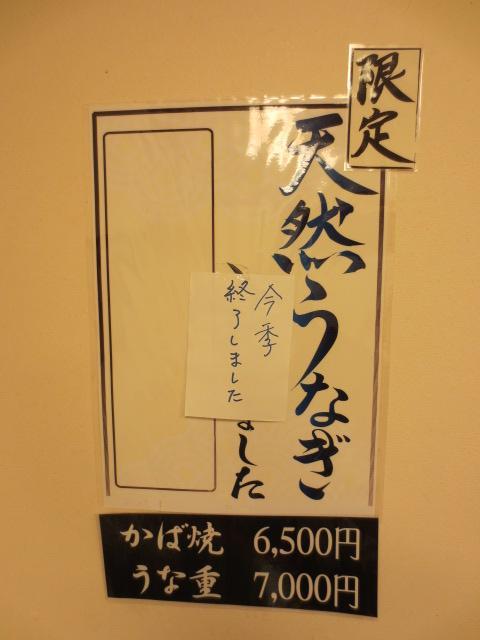 限定
天然うなぎ
ました
今季
終了しました
かば焼 6,500円
うな重 7,000円